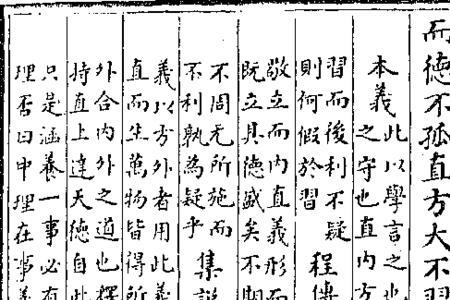 而德不孤直方大不習
本義
此以學言之也
之守也直內方
習而後利不疑
則何假於習
程傳
敬立而內直義形而
既立其德盛矣不期
不周无所施而
不利孰為疑乎
集說
義以方外者用此義
直而生萬物皆得所
外合內外之道也釋
持直上達天德自此
只是涵養一事必有
理否曰中理在事義